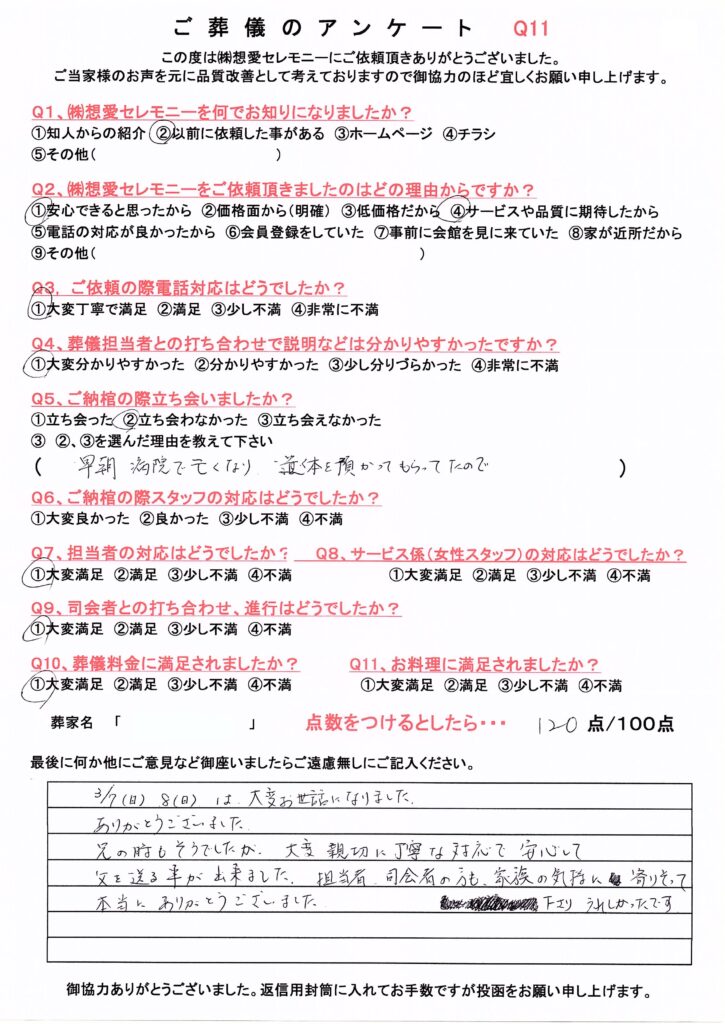 ご葬儀のアンケート Q11
この度は㈱想愛セレモニーにご依頼頂きありがとうございました。
ご当家様のお声を元に品質改善として考えておりますので御協力のほど宜しくお願い申し上げます。
Q1、㈱想愛セレモニーを何でお知りになりましたか？
①知人からの紹介 ②以前に依頼した事がある ③ホームページ ④チラシ
⑤その他( )
Q2、㈱想愛セレモニーをご依頼頂きましたのはどの理由からですか？
①安心できると思ったから ②価格面から(明確) ③低価格だから ④サービスや品質に期待したから
⑤電話の対応が良かったから ⑥会員登録をしていた ⑦事前に会館を見に来ていた ⑧家が近所だから
⑨その他( )
Q3, ご依頼の際電話対応はどうでしたか？
①大変丁寧で満足 ②満足 ③少し不満 ④非常に不満
Q4、葬儀担当者との打ち合わせで説明などは分かりやすかったですか？
①大変分かりやすかった ②分かりやすかった ③少し分りづらかった ④非常に不満
Q5、ご納棺の際立ち会いましたか？
①立ち会った ②立ち会わなかった ③立ち会えなかった
③ ②、③を選んだ理由を教えて下さい
( 早朝 病院で亡くなり 遺体を預かってもらってたので )
Q6、ご納棺の際スタッフの対応はどうでしたか？
①大変良かった ②良かった ③少し不満 ④不満
Q7、担当者の対応はどうでしたか？ Q8、サービス係(女性スタッフ)の対応はどうでしたか？
①大変満足 ②満足 ③少し不満 ④不満 ①大変満足 ②満足 ③少し不満 ④不満
Q9、司会者との打ち合わせ、進行はどうでしたか？
①大変満足 ②満足 ③少し不満 ④不満
Q10、葬儀料金に満足されましたか？ Q11、お料理に満足されましたか？
①大変満足 ②満足 ③少し不満 ④不満 ①大変満足 ②満足 ③少し不満 ④不満
葬家名 「 」 点数をつけるとしたら・・・ 120 点/100点
最後に何か他にご意見など御座いましたらご遠慮無しにご記入ください。
3/7(日) 8(日) は 大変お世話になりました。
ありがとうございました。
兄の時もそうでしたが、大変親切に丁寧な対応で 安心して
父を送る事が出来ました。担当者、司会者の方も、家族の気持に 寄りそって
本当に ありがとうございました。 下さり うれしかったです
御協力ありがとうございました。返信用封筒に入れてお手数ですが投函をお願い申し上げます。